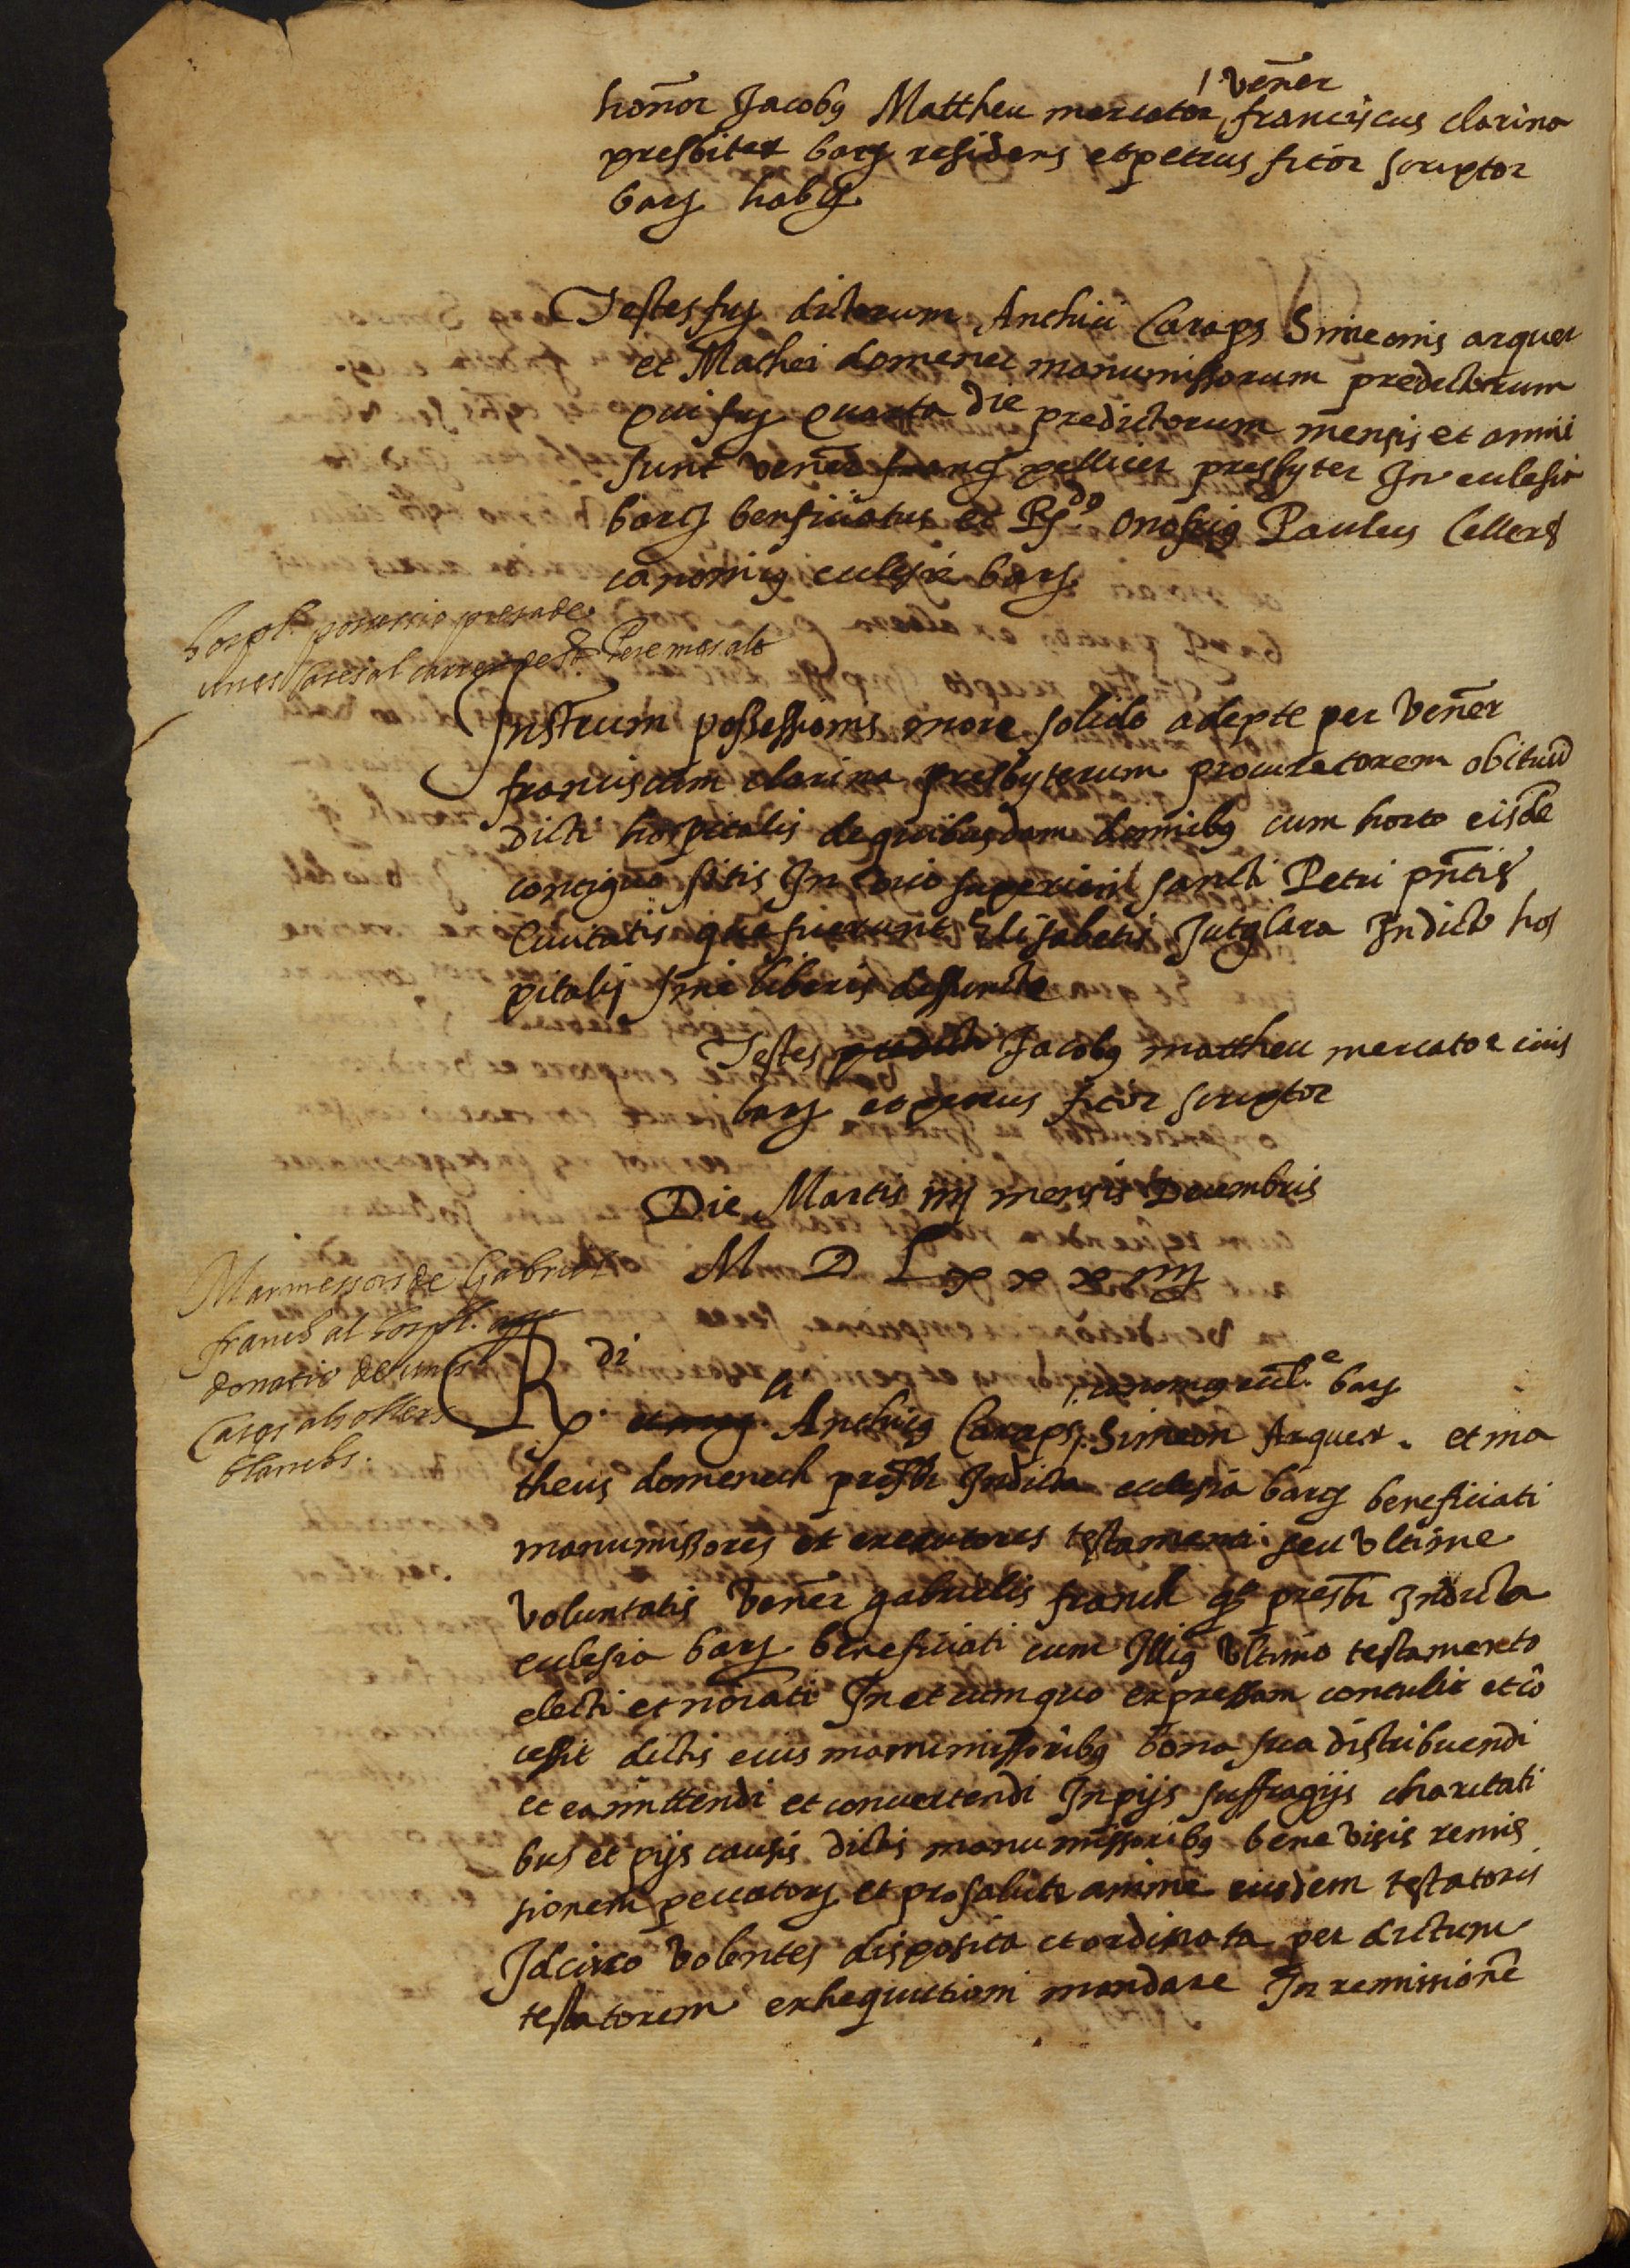 Vener
honor Jacobus Mattheu mercator franciscus clarina
presbiter barc residens et petrus fitor scriptor
barc habit
Testes firme dictorum Anthici Caraps Simeonis arquer
et Mathei domenec manumissorum predictorum
qui firme quarta die predictorum mensis et anni
sunt vener franc pellicer presbyter In ecclesia
barc benficiatus et Rdo onofrius Paulus Cellers
canonicus ecclesie barc
hospl. possessio presa de
unes Cases al carrer de St. Pere mes alt
Instrum possessionis more solido adepte per Vener
franciscum clarina presbyterum procuratorem obituu
dicti hospitalis de quibusdam domibus cum horto eisde
contiguo sitis In vico superiori sancti Petri pntis
Civitatis que fuerunt Elisabetis Jutglara In dicto hos
pitali sine liberis deffuncte
Testes predicti Jacobus mattheu mercator civis
barc et petrus fitor scriptor
Die Martis iiij mensis Decembris
M D L x x x iiij
Marmessors de Gabriel
franch al hospl.
donatio de unes
Cases als ollers
blanchs.
canonicus eccl.e barc
Rdi Anthicus Caraps Simeon Arquer. et ma
theus domenech presbri In dicta ecclesia barc beneficiati
manumissores et executores testamenti seu Ultime
Voluntatis Vener gabrielis franch qo presbri In dicta
ecclesia barc beneficiati cum Illius Ultimo testamento
electi et noiati In et cum quo expressam contulit et co
cessit dictis eius manumissoribus bona sua distribuendi
et ea mittendi et convertendi In pijs suffragijs charitati
bus et pijs causis dictis manumissoribus bene Visis remis
sionem peccatorz et pro salute anime eiusdem testatoris
Idcirco Volentes disposita et ordinata per dictum
testatorem exhequutioni mandare In remissione